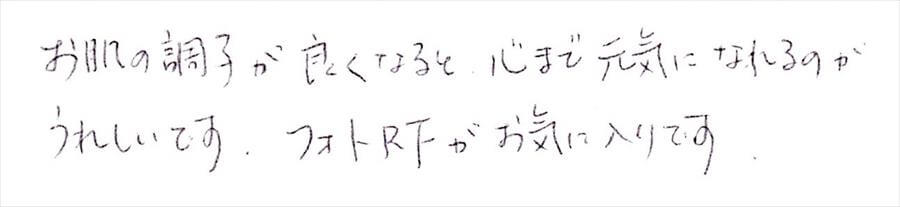 お肌の調子が良くなると、心まで元気になれるのが
うれしいです. フォトRFがお気に入りです.